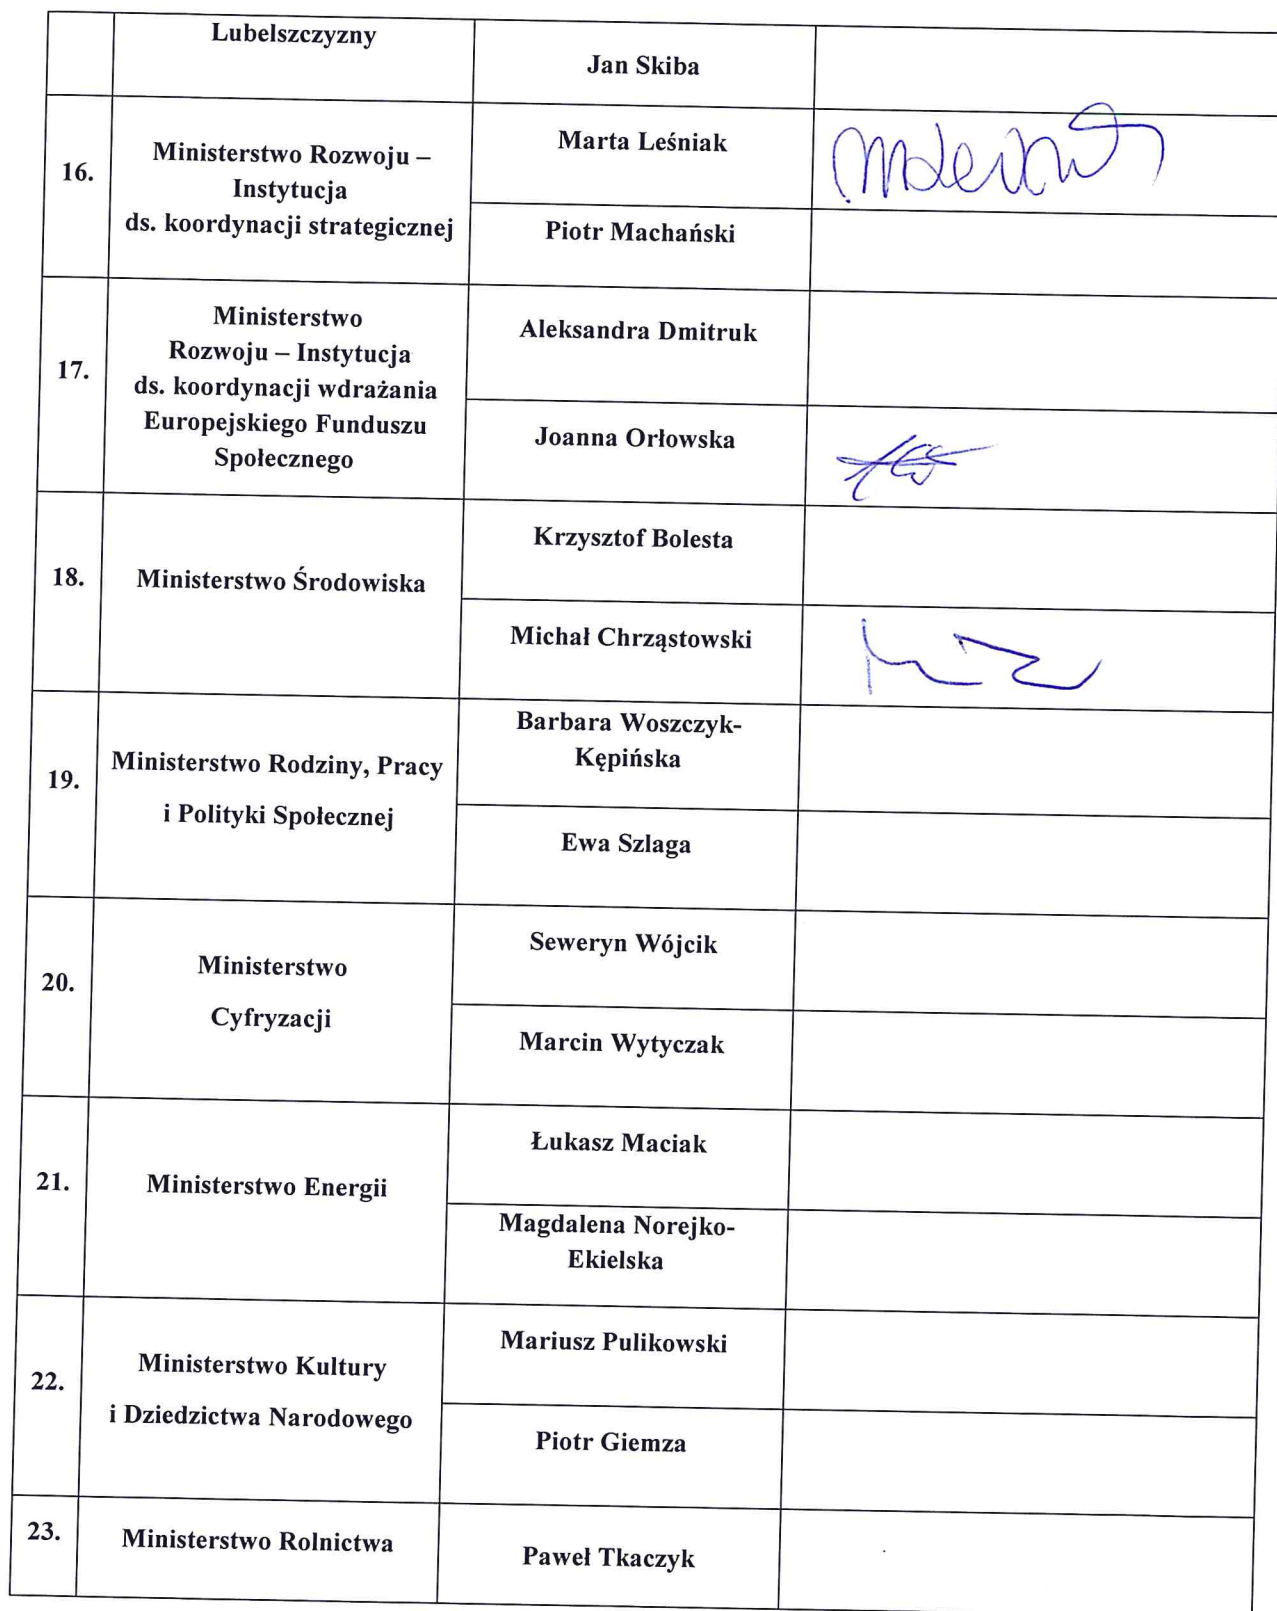 Lubelszczyzny
Jan Skiba
16.
Ministerstwo Rozwoju –
Instytucja
ds. koordynacji strategicznej
Marta Leśniak
Piotr Machański
17.
Ministerstwo
Rozwoju – Instytucja
ds. koordynacji wdrażania
Europejskiego Funduszu
Społecznego
Aleksandra Dmitruk
Joanna Orłowska
18.
Ministerstwo Środowiska
Krzysztof Bolesta
Michał Chrząstowski
19.
Ministerstwo Rodziny, Pracy
i Polityki Społecznej
Barbara Woszczyk-
Kępińska
Ewa Szlaga
20.
Ministerstwo
Cyfryzacji
Seweryn Wójcik
Marcin Wytyczak
21.
Ministerstwo Energii
Łukasz Maciak
Magdalena Norejko-
Ekielska
22.
Ministerstwo Kultury
i Dziedzictwa Narodowego
Mariusz Pulikowski
Piotr Giemza
23.
Ministerstwo Rolnictwa
Paweł Tkaczyk